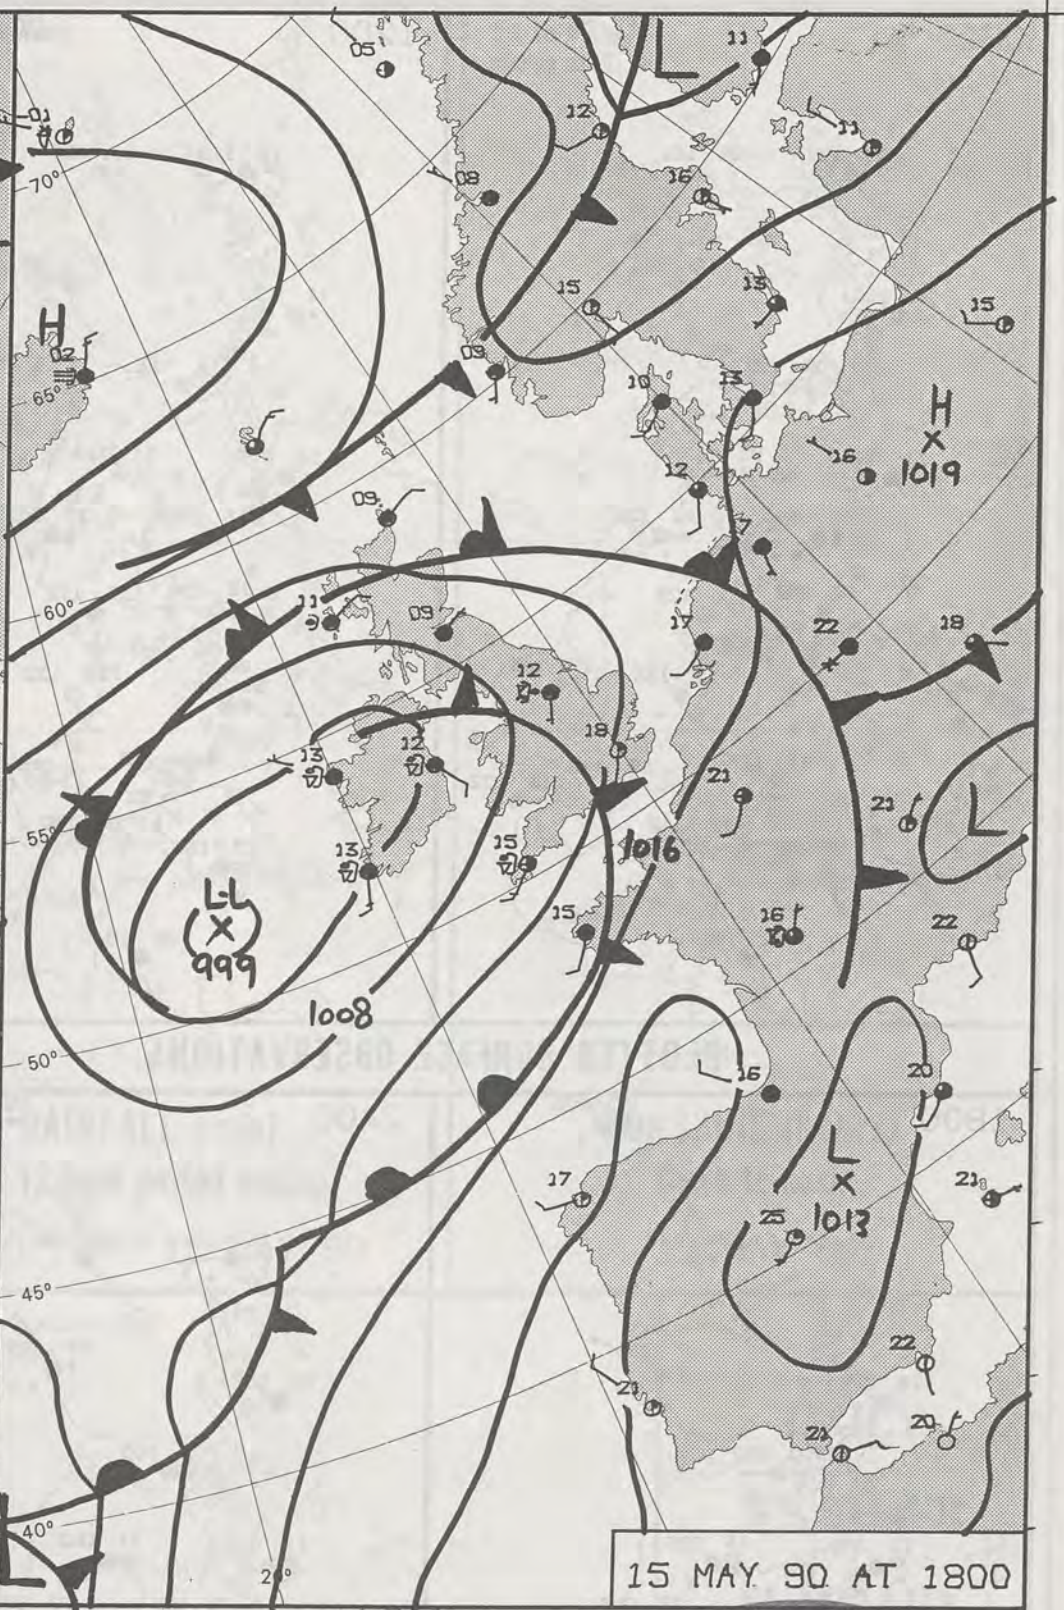 05
11
L
01
12
11
70°
08
16
15
13
15
H
02
09
65°
10
13
H
16
1019
12
09
17
60°
11
09
17
22
18
12
18
13
12
21
21
L
55°
13
15
1016
L-L
999
15
16
22
1008
50°
16
20
L
17
21
25
1013
45°
22
21
21
20
40°
L
20°
15 MAY 90 AT 1800